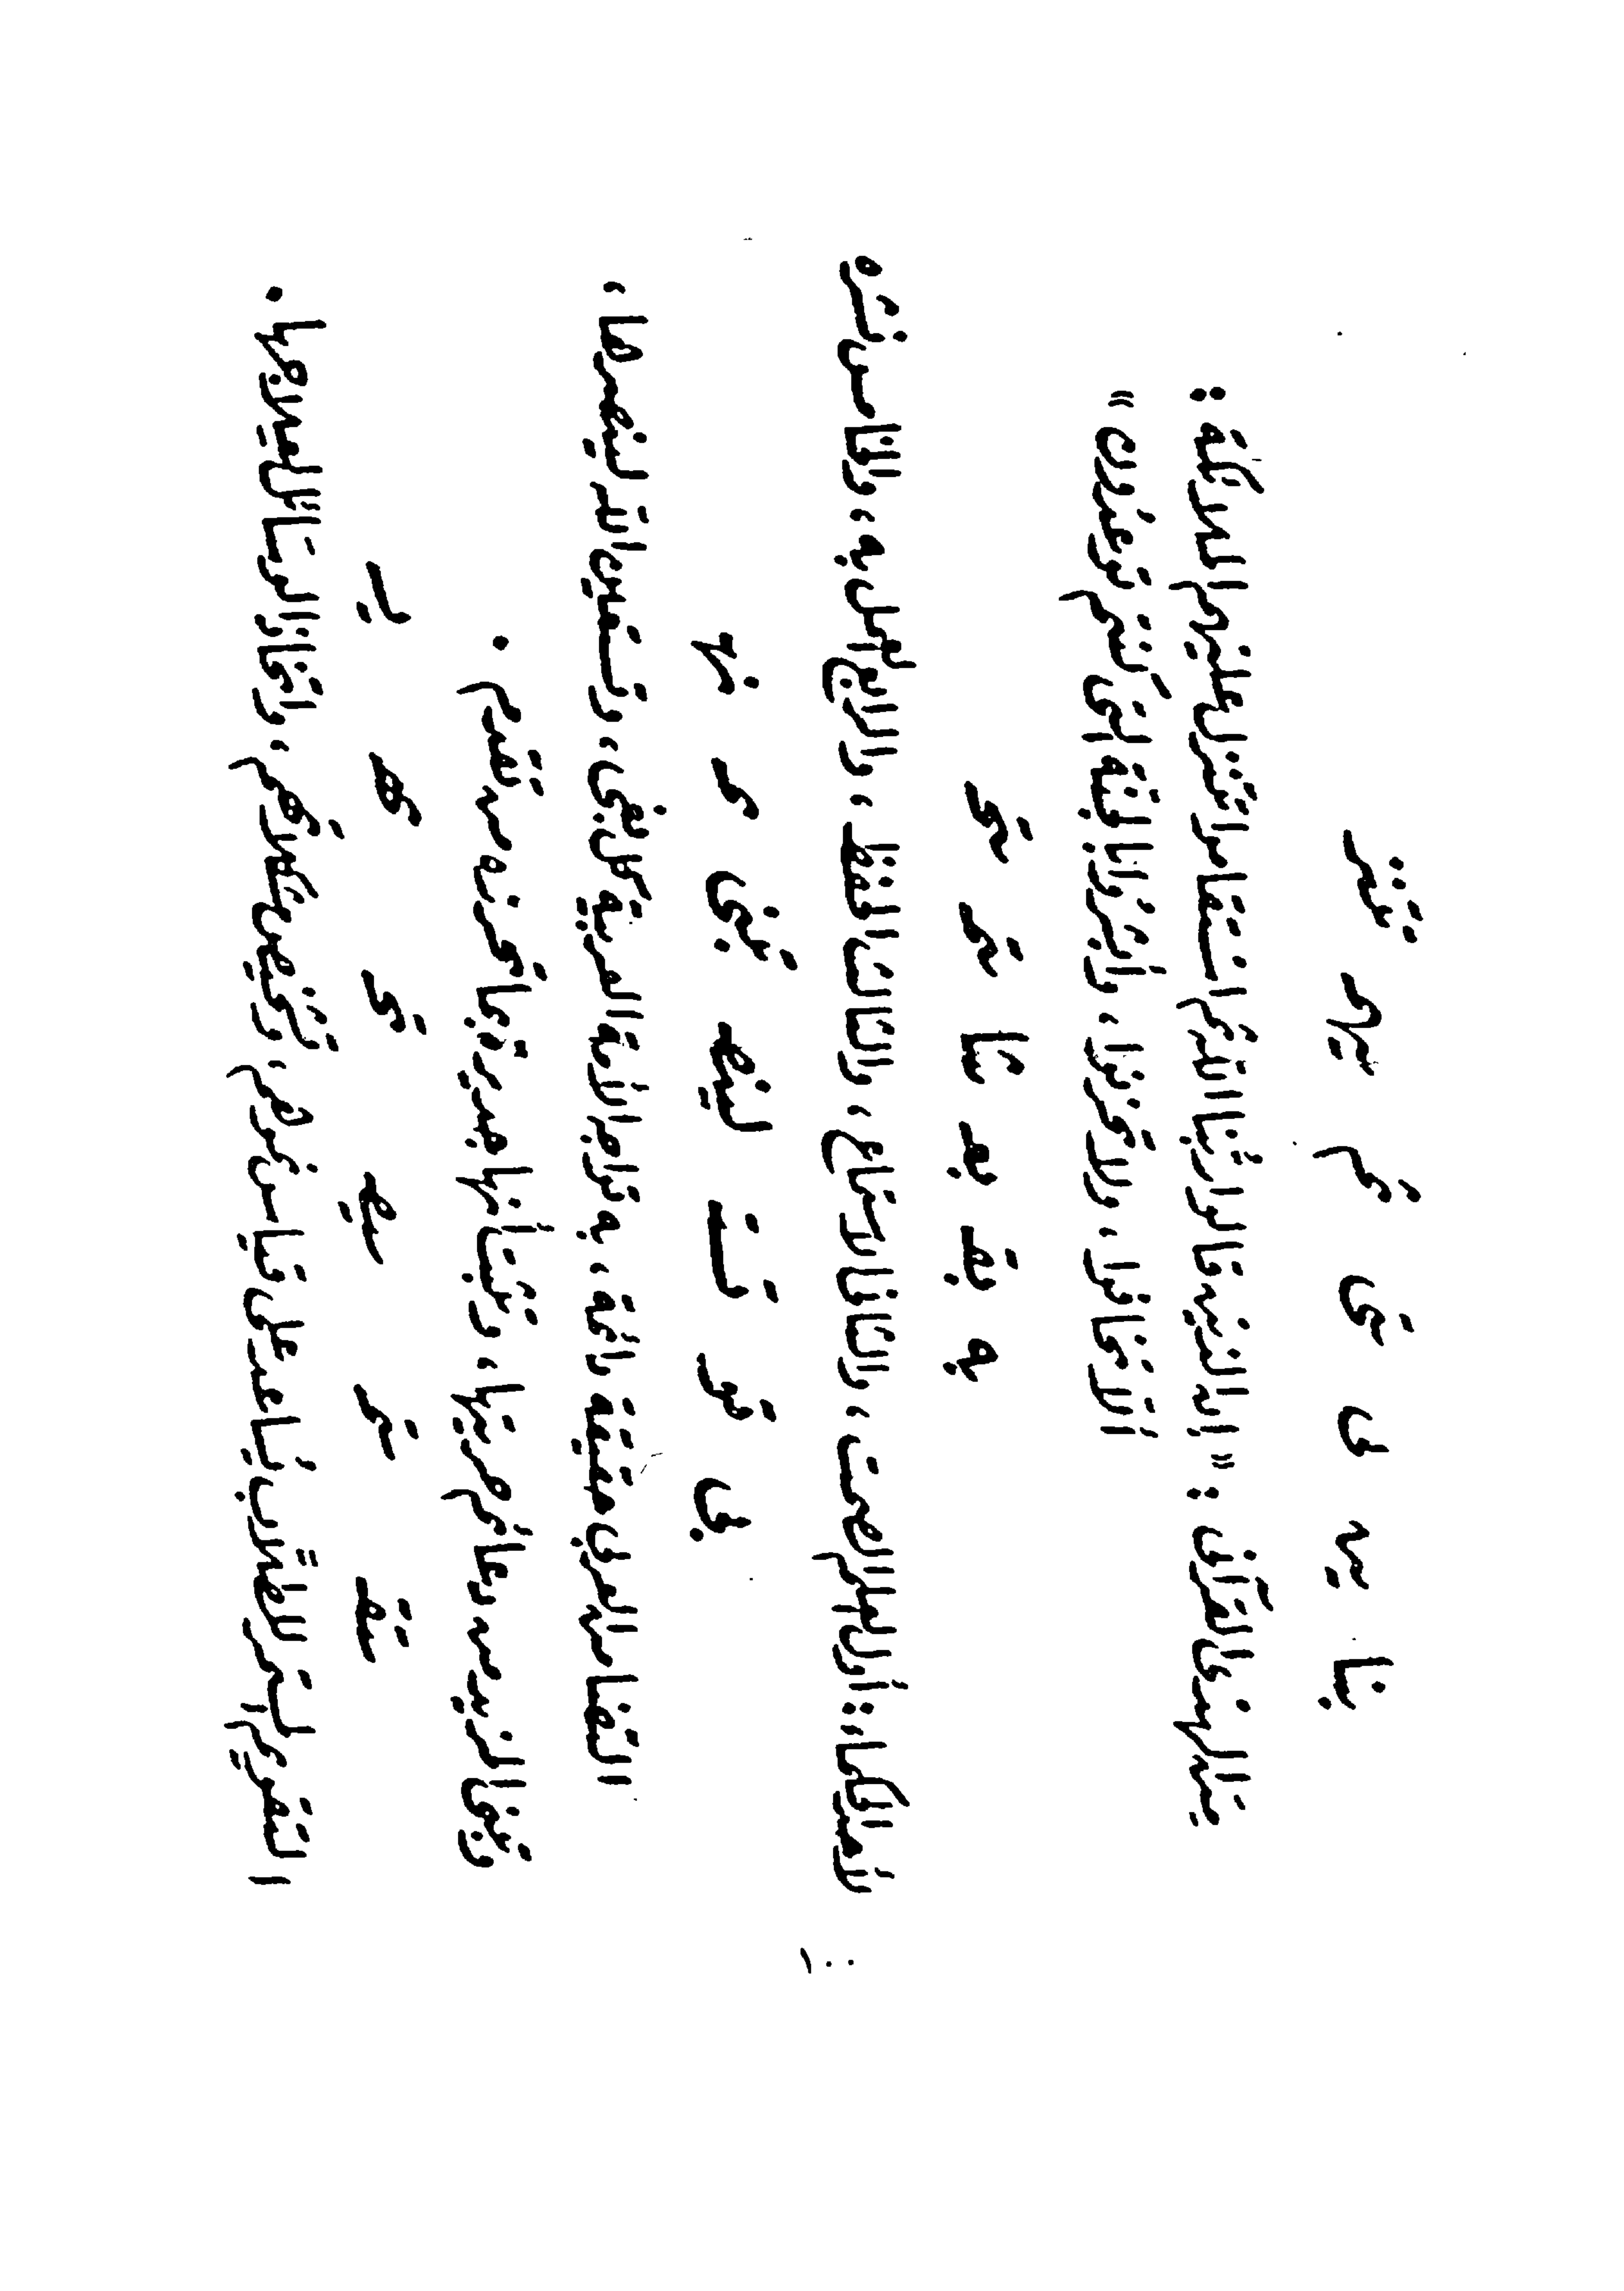 نا ين
من الهدى القرآنى : « إن الذين قالوا ربنا الله ثم استقاموا تتنزل عليهم الملائكة :
ألا تخافوا ، ولا تحزنوا ، وأبشروا بالجنة التى كنتم توعدون »
به بقـ بعـ
الحكماء : أول العلم الصمت ، والثانى الاستماع ، والثالث الحفظ ، والرابع العمل به ، والخامس نشره
بى تو تستـ
التضامن العربى حقيقة واقعة ، به تواجه الأمة العربية كل بغى ، وتستعين الله لينصرها ،
وتبنى المزيد من دعائم حريتها ، وتثبت أنها جديرة بما تحرزه من تقدم .
التقويم المستمر للطلاب يساعد على قياس نموهم ، وتشخيص ، واتخاذ الوسائل